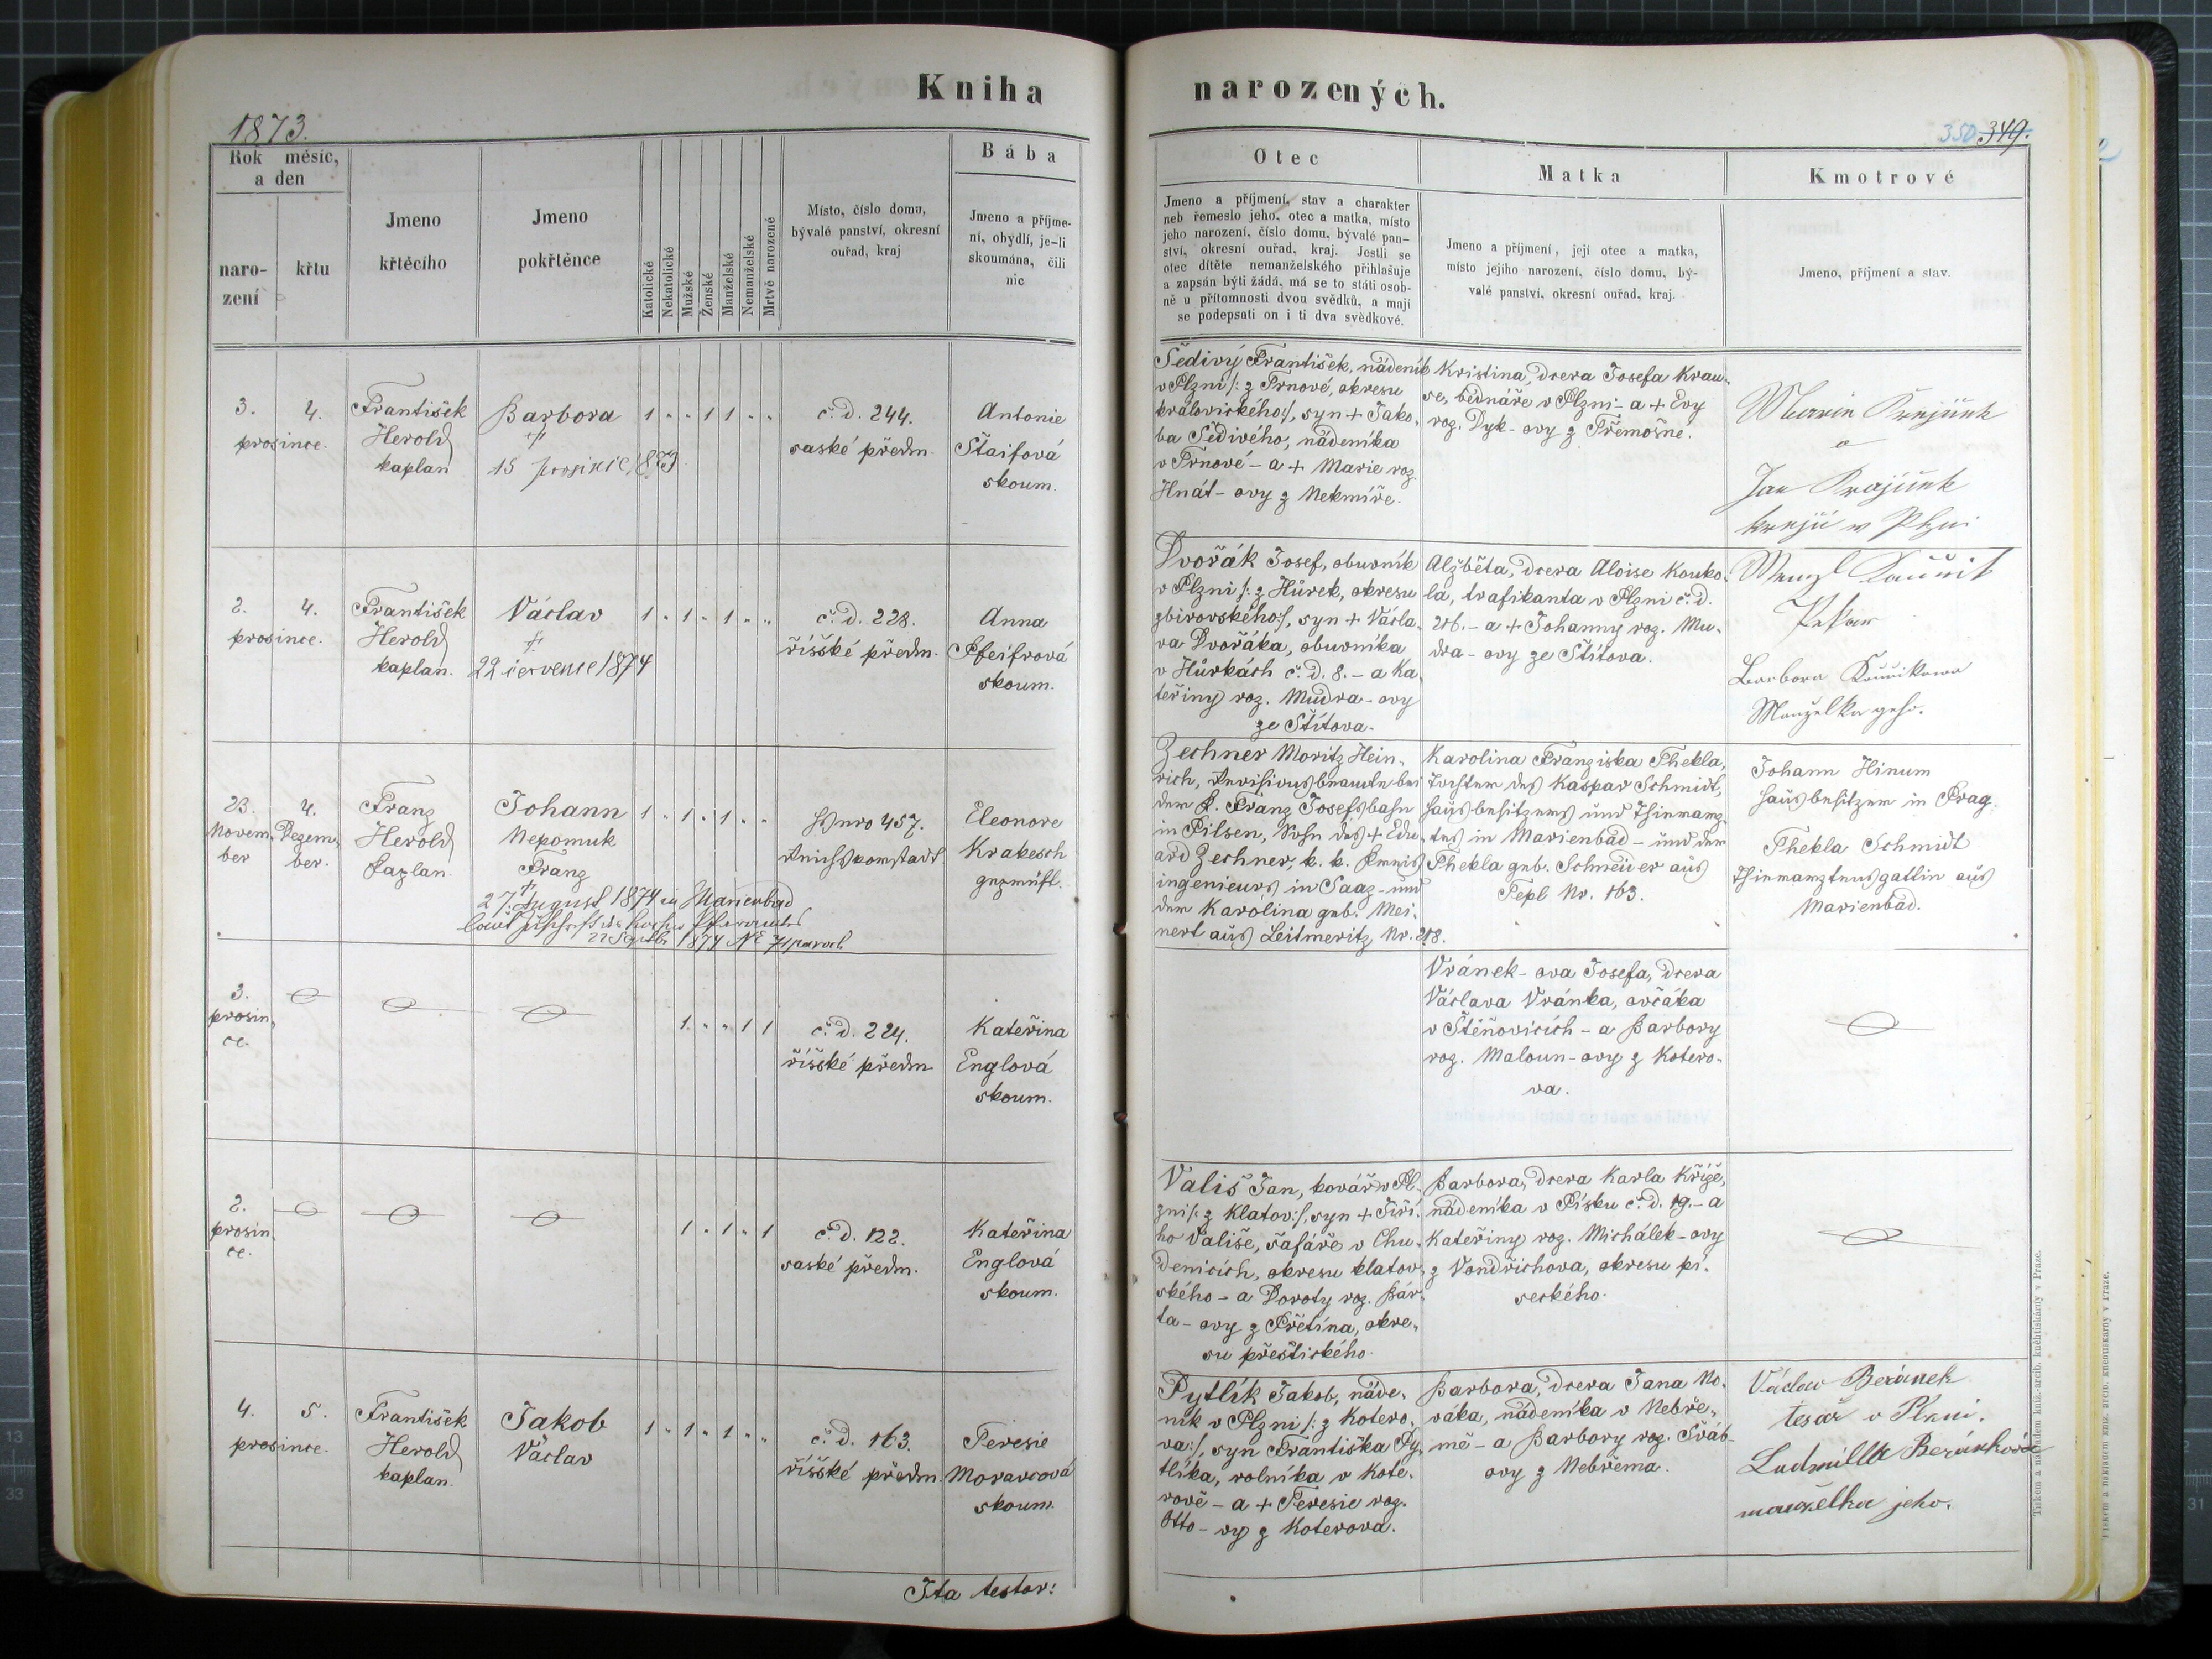 Kniha
narozených.
1873.
350 349.
Rok měsíc,
a den
naro-
zení
křtu
Jmeno
křtěcího
Jmeno
pokřtěnce
Katolické
Nekatolické
Mužské
Ženské
Manželské
Nemanželské
Mrtvě narozené
Místo, číslo domu,
bývalé panství, okresní
ouřad, kraj
Bába
Jmeno a příjme-
ní, obydlí, je-li
skoumána, čili
nic
Otec
Jmeno a příjmení, stav a charakter
neb řemeslo jeho, otec a matka, místo
jeho narození, číslo domu, bývalé pan-
ství, okresní ouřad, kraj. Jestli se
otec dítěte nemanželského přihlašuje
a zapsán býti žádá, má se to státi osob-
ně u přítomnosti dvou svědků, a mají
se podepsati on i ti dva svědkové.
Matka
Jmeno a příjmení, její otec a matka,
místo jejího narození, číslo domu, bý-
valé panství, okresní ouřad, kraj.
Kmotrové
Jmeno, příjmení a stav.
3. 4.
prosince.
František
Herold
kaplan
Barbora
†
15 prosinic 1873
1 " " 1 1 " "
č. d. 244.
saské předm.
Antonie
Štaifová
skoum.
Šedivý František, nádeník
v Plzni /: z Trnové, okresu
královického :/, syn + Jako-
ba Šedivého, nádeníka
v Trnové - a + Marie roz.
Hnát-ovy z Nekmíře.
Kristina, dcera Josefa Krau-
se, bednáře v Plzni - a + Evy
roz. Dyk-ovy z Třemošné.
Marie
a
Jan
krejčí v Plzni
2. 4.
prosince.
František
Herold
kaplan.
Václav
†
22 července 1874
1 " 1 " 1 " "
č. d. 228.
říšské předm.
Anna
Pfeifrová
skoum.
Dvořák Josef, obuvník
v Plzni /: z Hůrek, okresu
zbirovského :/, syn + Václa-
va Dvořáka, obuvníka
v Hůrkách č. d. 8. - a Ka-
teřiny roz. Mudra-ovy
ze Štítova.
Alžběta, dcera Aloise Kouko-
la, trafikanta v Plzni č. d.
26. - a + Johanny roz. Mu-
dra-ovy ze Štítova.
Wenzl
Pekar
Barbora
Manželka geho.
23.
Novem-
ber
4.
Dezem-
ber.
Franz
Herold
Kaplan.
Johann
Nepomuk
Franz
†
27. August 1874 in Marienbad
laut Zuschrift des Pfarramtes
22 Septb. 1874 No 71 paroch.
1 " 1 " 1 " "
Hs nro 457.
Reichsvorstadt
Eleonore
Krakesch
geprüft.
Zechner Moritz Hein-
rich, Revisionsbeamte bei
der K. Franz Josefsbahn
in Pilsen, Sohn des + Edu-
ard Zechner, k. k. Kreis
ingenieurs in Saaz - und
der Karolina geb. Mei-
nert aus Leitmeritz Nr. 218.
Karolina Franziska Thekla,
Tochter des Kaspar Schmidt,
Hausbesitzers und Thierarz-
tes in Marienbad - und der
Thekla geb. Schneider aus
Tepl Nr. 163.
Johann Hinum
Hausbesitzer in Prag.
Thekla Schmidt
Thierarztensgattin aus
Marienbad.
3.
prosin-
ce.
1 " " 1 1
č. d. 224.
říšské předm.
Kateřina
Englová
skoum.
Vránek-ova Josefa, dcera
Václava Vránka, ovčáka
v Štěnovicích - a Barbory
roz. Maloun-ovy z Kotero-
va.
2.
prosin-
ce.
1 " 1 " 1
č. d. 122.
saské předm.
Kateřina
Englová
skoum.
Vališ Jan, kovář v Pl-
zni /: z Klatov :/, syn + Jiří-
ho Vališe, šafáře v Chu-
denicích, okresu klatov-
ského - a Doroty roz. Bár-
ta-ovy z Přetína, okre-
su přeštického.
Barbora, dcera Karla Kříže,
nádeníka v Písku č. d. 19. - a
Kateřiny roz. Michálek-ovy
z Vondřichova, okresu pí-
seckého.
4. 5.
prosince.
František
Herold
kaplan.
Jakob
Václav
1 " 1 " 1 " "
č. d. 163.
říšské předm.
Teresie
Moravcová
skoum.
Pytlík Jakob, náde-
ník v Plzni /: z Kotero-
va :/, syn Františka Py-
tlíka, rolníka v Kote-
rově - a + Teresie roz.
Otto-vy z Koterova.
Barbora, dcera Jana No-
váka, nádeníka v Nebře-
mě - a Barbory roz. Šváb-
ovy z Nebřema.
Václav Beránek
tesař v Plzni.
Ludmilla Beránková
manželka jeho.
Ita testor:
Tiskem a nákladem kníž.-arcib. kněhtiskárny v Praze.
Tiskem a nákladem kníž. arcib. knehtiskárny v Praze.